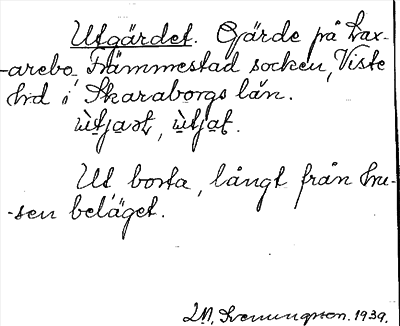 Utgärdet. Gärde på Lax-
-arebo, Främmestad socken, Viste
hd i Skaraborgs län.
ùtjaət, ùtjat.
Ut borta, långt från hu-
-sen beläget.
1939.